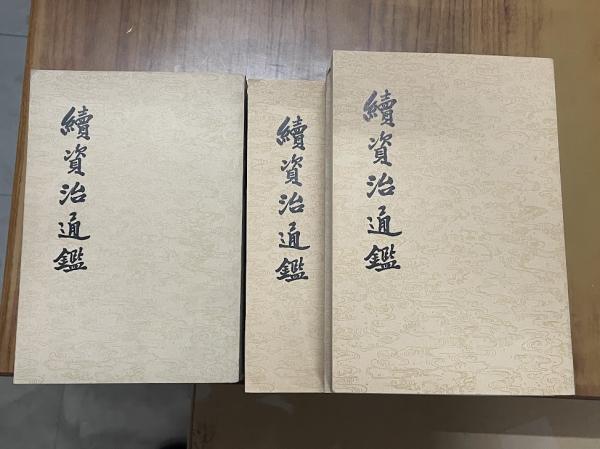 續資治通鑑
續資治通鑑
續資治通鑑